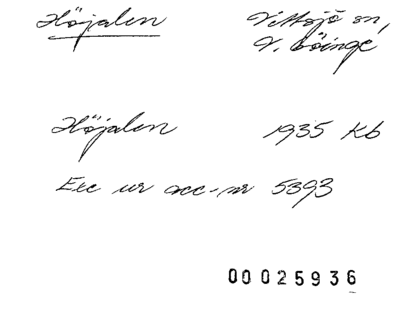 Höjalen Vittsjö sn,
V. Göinge
Höjalen 1935 Kb
Exc ur acc-nr 5393
00 025936